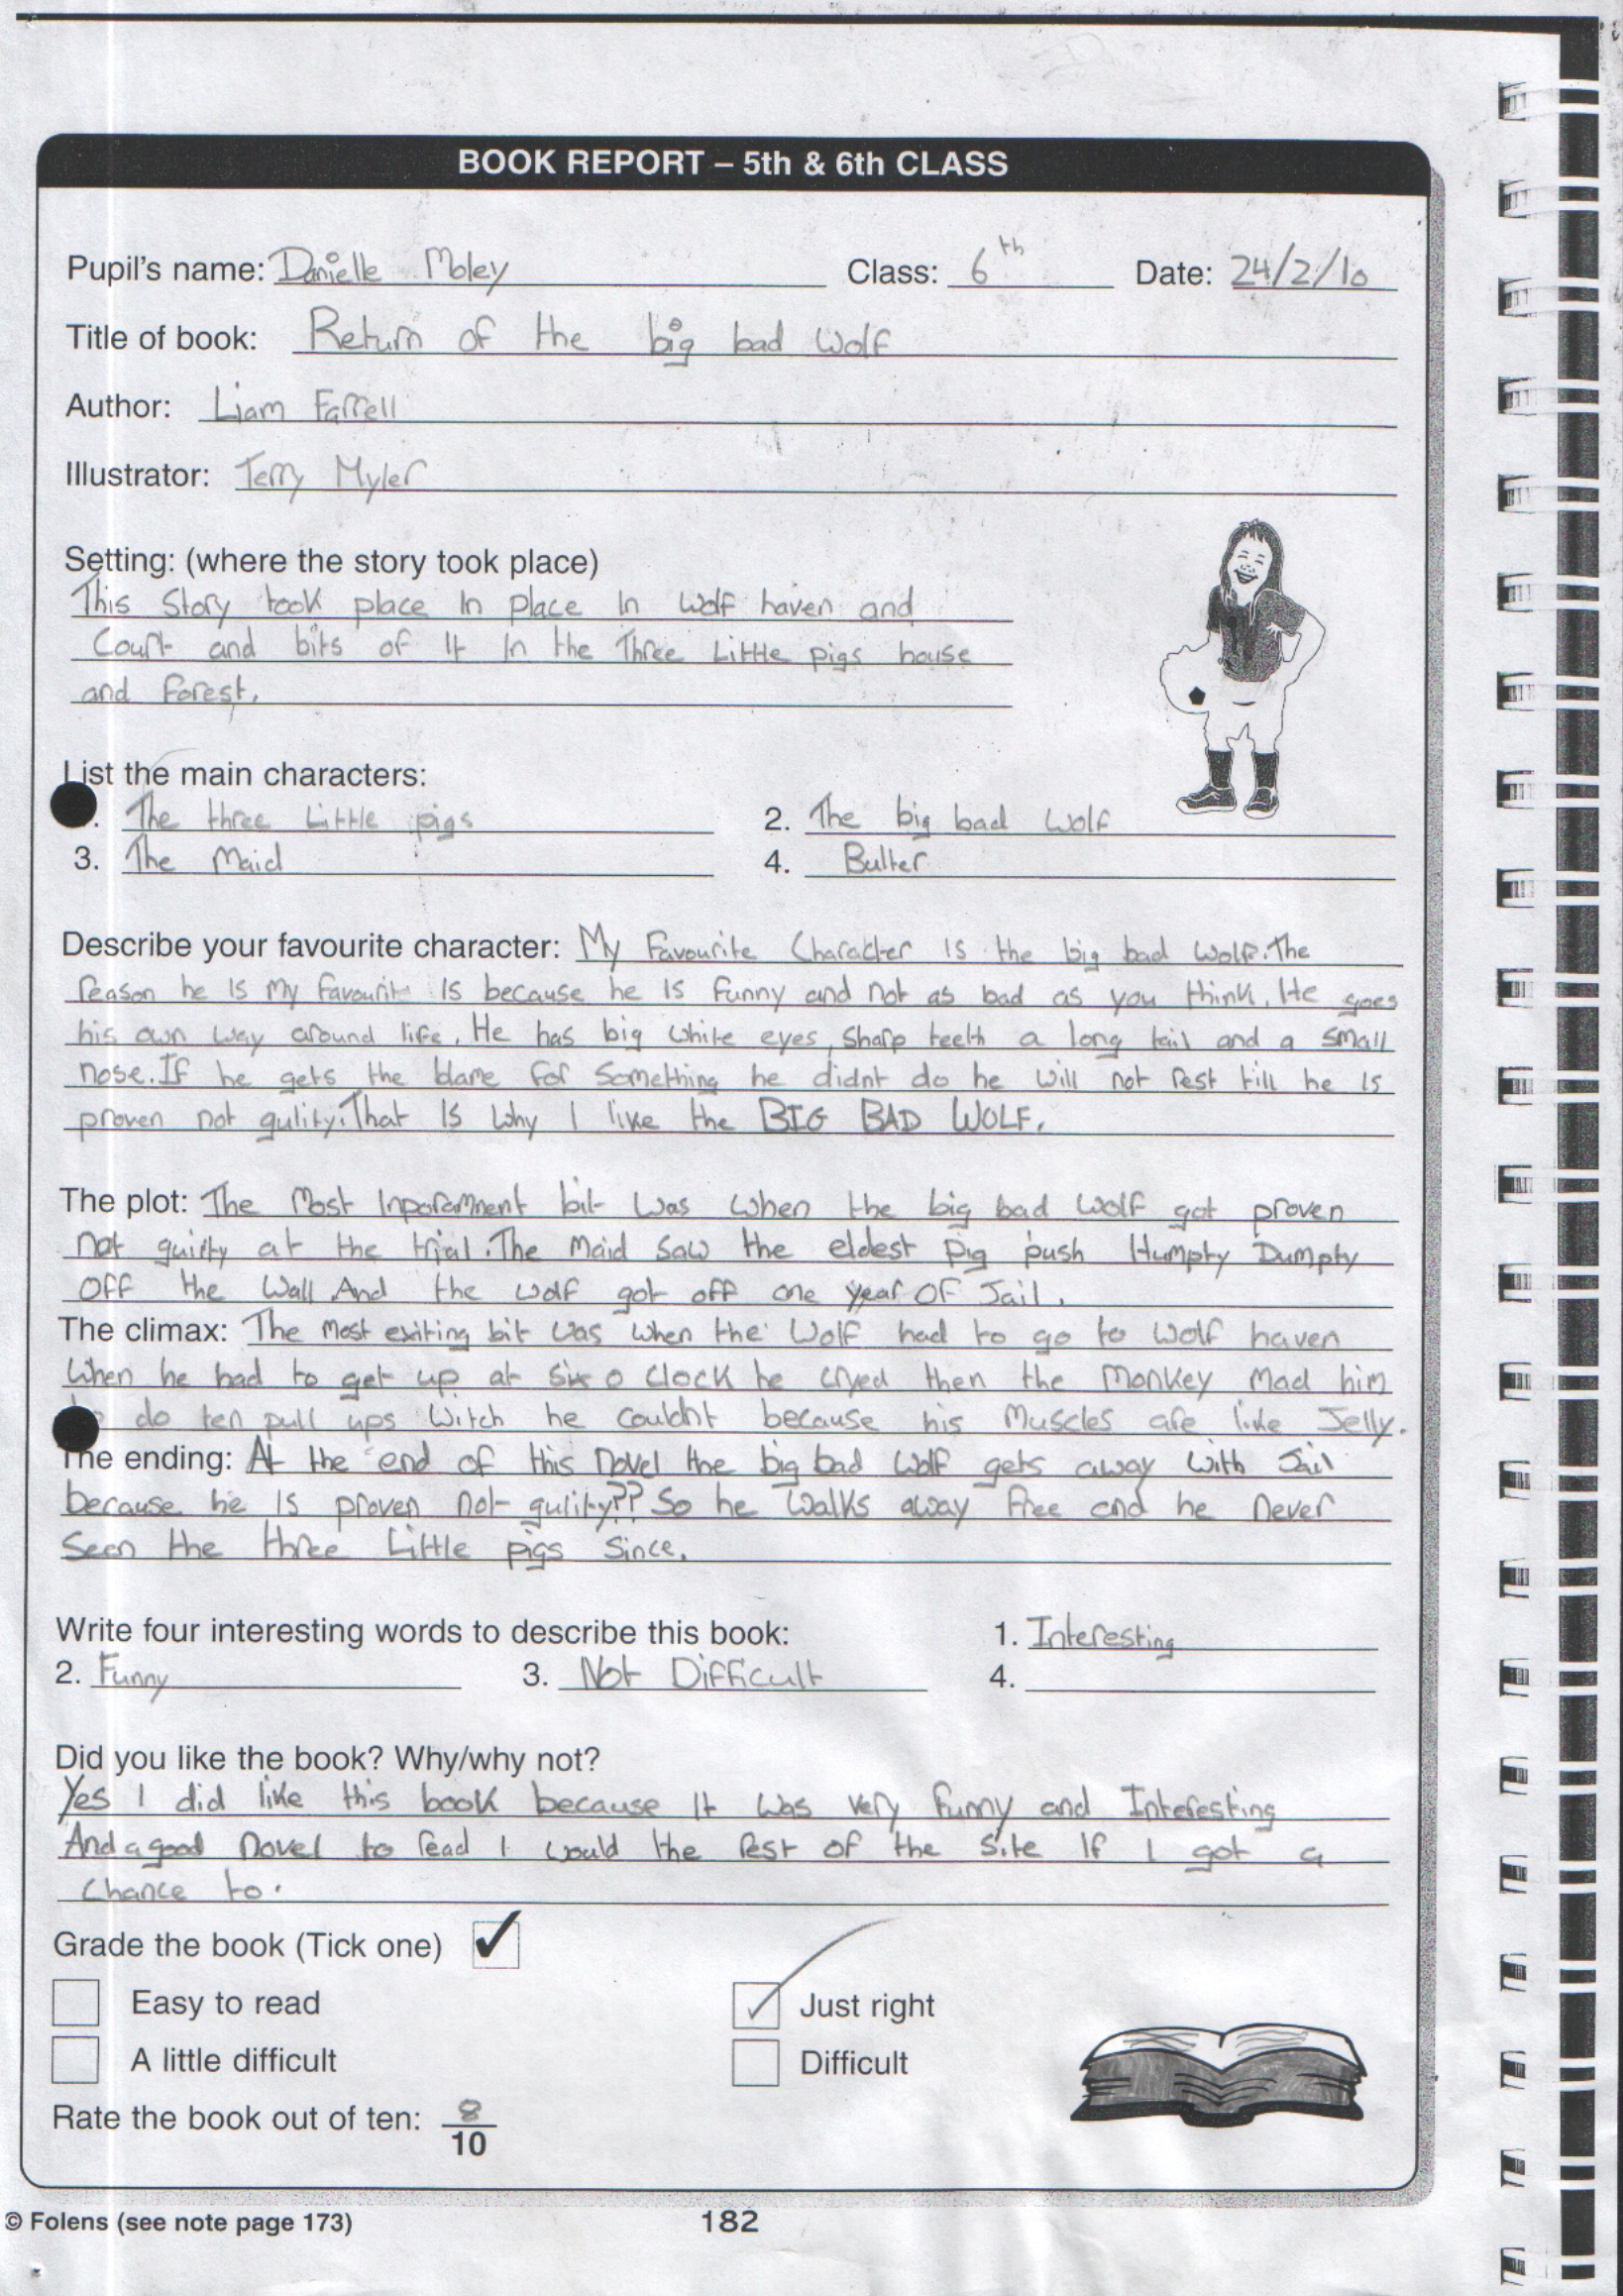 BOOK REPORT – 5th & 6th CLASS
Pupil's name: Danielle Moley Class: 6th Date: 24/2/10
Title of book: Return of the big bad Wolf
Author: Liam Farrell
Illustrator: Terry Myler
Setting: (where the story took place)
This Story took place In place In Wolf haven and
Court and bits of It In the Three Little pigs house
and Forest.
List the main characters:
. The three Little pigs 2. The big bad Wolf
3. The Maid 4. Bulter
Describe your favourite character: My Favourite Character Is the big bad Wolf. The
reason he Is My favourit Is because he Is Funny and not as bad as you think. He goes
his own way around life. He has big white eyes, Sharp teeth a long tail and a small
nose. If he gets the blame For Something he didnt do he will not rest till he Is
proven not gulity. That Is Why I like the BIG BAD WOLF.
The plot: The Most Inporamnent bit Was When the big bad Wolf got proven
not guilty at the trial. The Maid Saw the eldest Pig push Humpty Dumpty
OFF the Wall And the wolf got off one year OF Jail.
The climax: The Most exiting bit was when the Wolf had to go to Wolf haven
When he had to get up at Six o Clock he cryed then the Monkey Mad him
do ten pull ups Witch he couldnt because his Muscles are like Jelly.
The ending: At the end of this Novel the big bad Wolf gets away with Jail
because he Is proven not gulity?? So he Walks away Free and he never
Seen the three Little pigs Since.
Write four interesting words to describe this book: 1. Interesting
2. Funny 3. Not Difficult 4.
Did you like the book? Why/why not?
Yes I did like this book because It Was very Funny and Interesting
And a good Novel to read I would the rest of the Site If I got a
Chance to.
Grade the book (Tick one) ✓
Easy to read ✓ Just right
A little difficult Difficult
Rate the book out of ten: 8/10
© Folens (see note page 173) 182